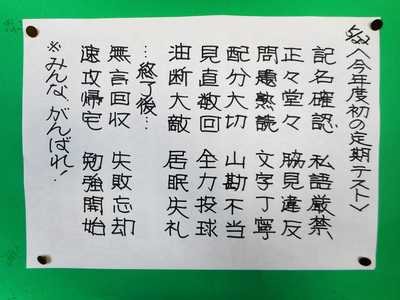 〈今年度初の定期テスト〉
記名確認 私語厳禁
正々堂々 脇見違反
問題熟読 文字丁寧
配分大切 山勘不当
見直数回 全力投球
油断大敵 居眠失礼
…終了後…
無言回収 失敗忘却
速攻帰宅 勉強開始
※みんな、がんばれ!